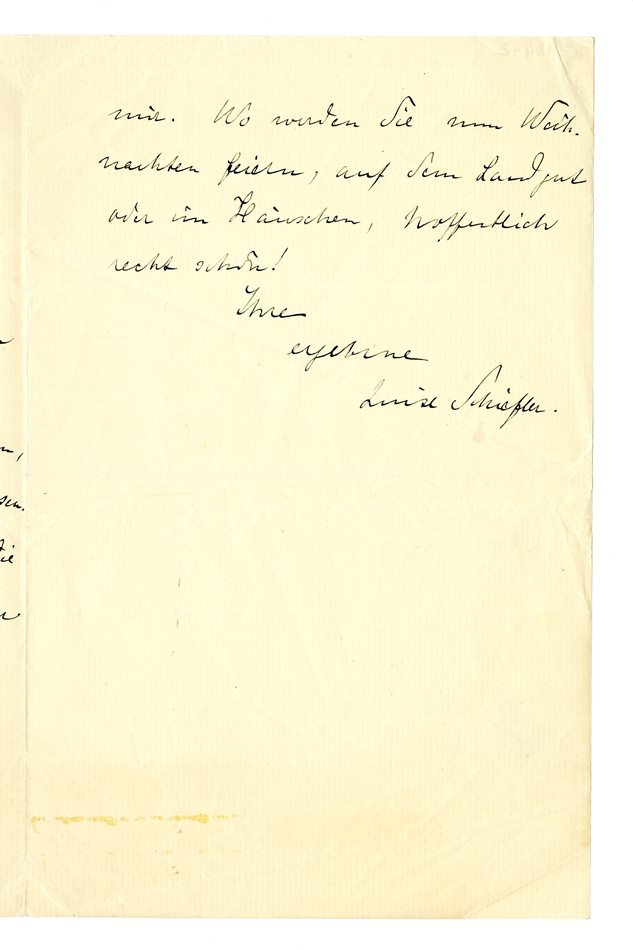 mir. Wo werden Sie nun Weih-
nachten feiern, auf dem Landgut
oder im Häuschen, hoffentlich
recht schön!
Ihre
ergebene
Luise Schiefler.